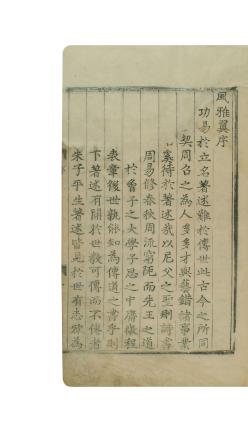 風雅翼序
功易於立名著述難於傳世此古今之所同
契周召之為人多多才與藝錯諸事業
奚待於著述哉以尼父之聖刪詩書
周易修春秋周流窮阨而先王之道
於曾子之大學子思之中庸微程
表章緩世孰能知為傳道之書乎則
下著述有關於世教可傳而不傳者
朱子平生著述皆見於世有志欲為